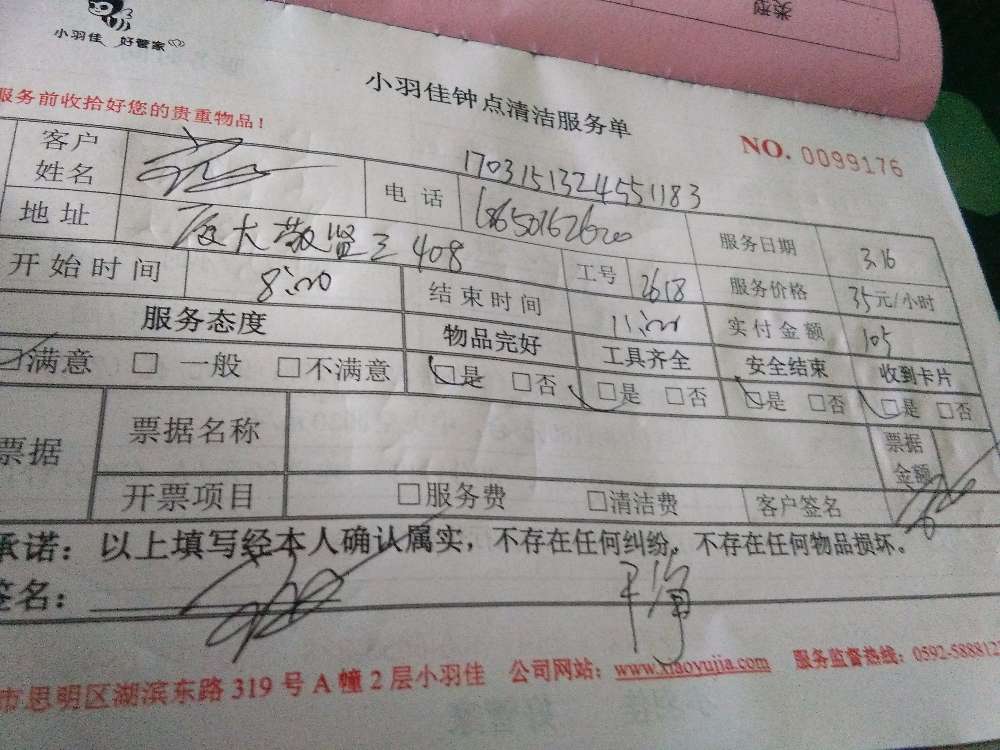 类型
小羽佳 好管家
小羽佳钟点清洁服务单
服务前收拾好您的贵重物品！
NO. 0099176
客户姓名 电话 1703151324551183
18650162620 服务日期 3.16
地址 厦大敬贤三408 工号 2618 服务价格 35元/小时
开始时间 8:00 结束时间 11:00 实付金额 105
服务态度 物品完好 工具齐全 安全结束 收到卡片
满意 □ 一般 □不满意 □是 □否 □是 □否 □是 □否 □是 □否
票据 票据名称 票据金额
开票项目 □服务费 □清洁费 客户签名
承诺：以上填写经本人确认属实，不存在任何纠纷。不存在任何物品损坏。
签名：
市思明区湖滨东路319号A幢2层小羽佳 公司网站：www.xiaoyujia.com 服务监督热线：0592-588812